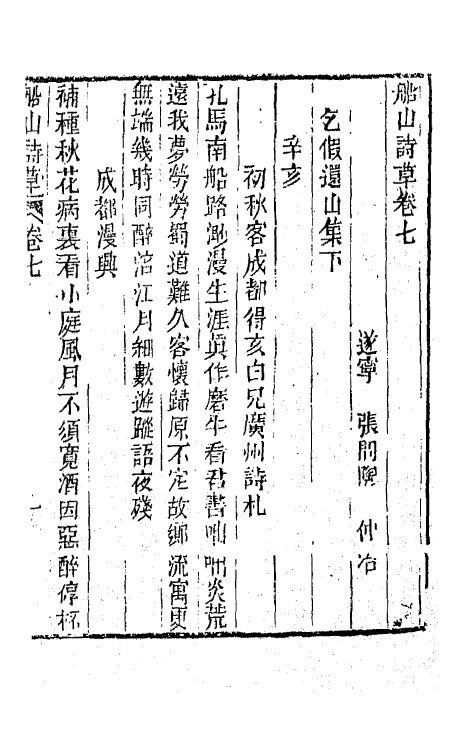 船山詩草卷七
遂寧　張問陶　仲冶
乞假還山集下
辛亥
初秋客成都得亥白兄廣州詩札
北馬南船路渺漫生涯眞作磨牛看君書咄咄炎荒
遠我夢勞勞蜀道難久客懷歸原不定故鄉流寓更
無端幾時同醉涪江月細數遊蹤語夜殘
成都漫興
補種秋花病裏看小庭風月不須寬酒因惡醉停杯
船山詩草　卷七　一